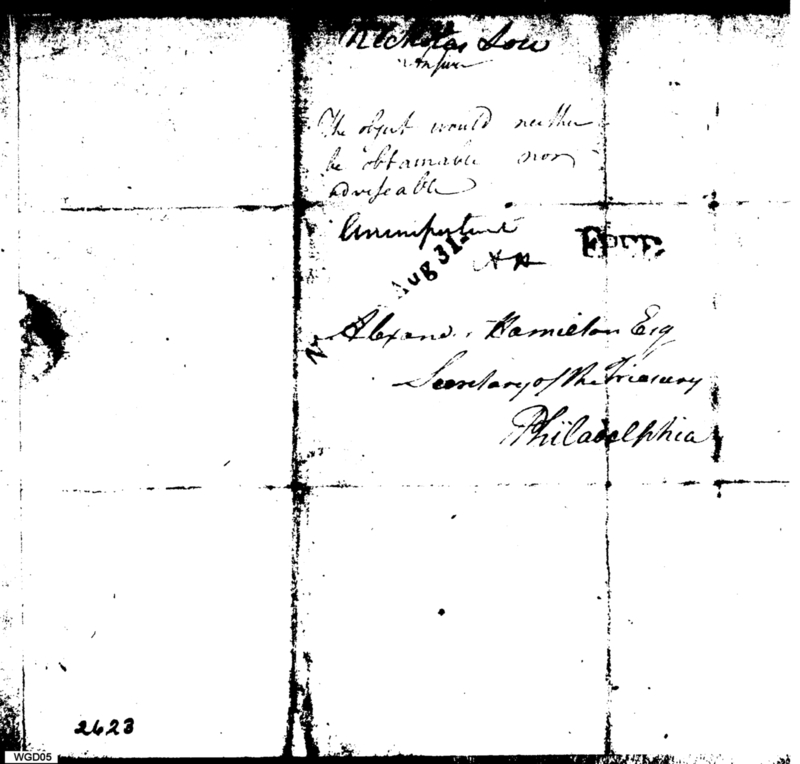 Nicholas Low
Answer
The object would neither
be obtainable nor
adviseable
Unimportant
Aug 31
AH
Free
Alexanr. Hamilton Esq
Secretary of the Treasury
Philadelphia
2623
WGD05